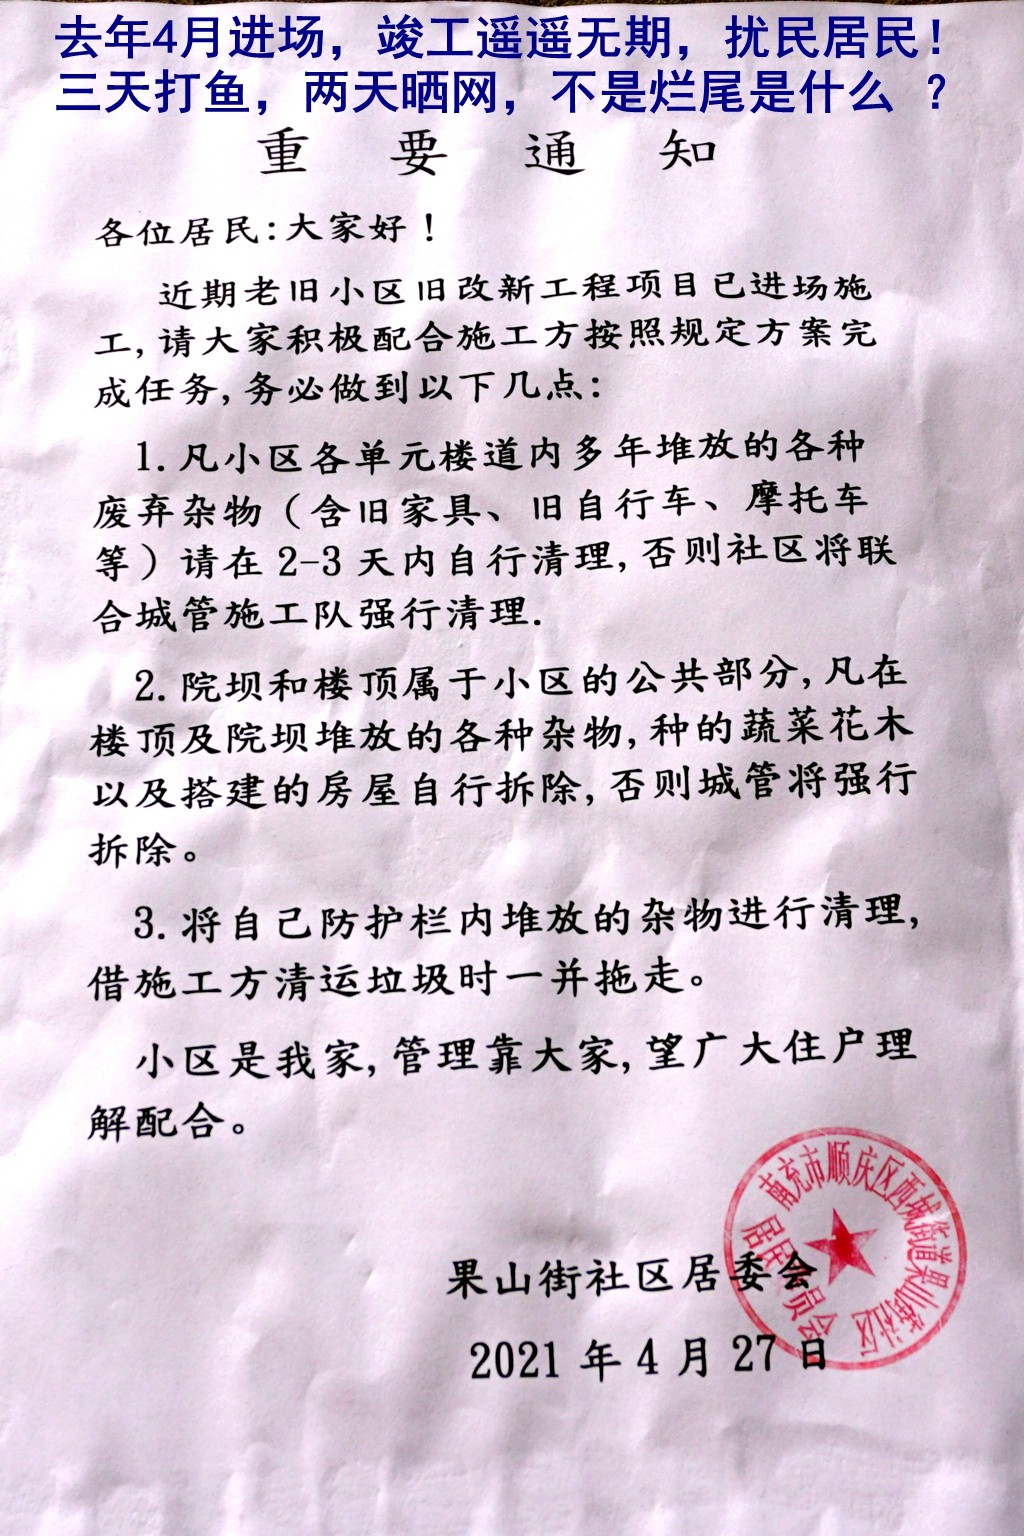 去年4月进场，竣工遥遥无期，扰民居民！
三天打鱼，两天晒网，不是烂尾是什么 ？
重 要 通 知
各位居民:大家好！
近期老旧小区旧改新工程项目已进场施
工,请大家积极配合施工方按照规定方案完
成任务,务必做到以下几点:
1.凡小区各单元楼道内多年堆放的各种
废弃杂物（含旧家具、旧自行车、摩托车
等）请在2-3天内自行清理,否则社区将联
合城管施工队强行清理.
2.院坝和楼顶属于小区的公共部分,凡在
楼顶及院坝堆放的各种杂物,种的蔬菜花木
以及搭建的房屋自行拆除,否则城管将强行
拆除。
3.将自己防护栏内堆放的杂物进行清理,
借施工方清运垃圾时一并拖走。
小区是我家,管理靠大家,望广大住户理
解配合。
果山街社区居委会
2021年4月27日
南充市顺庆区西城街道果山街社区
居民委员会